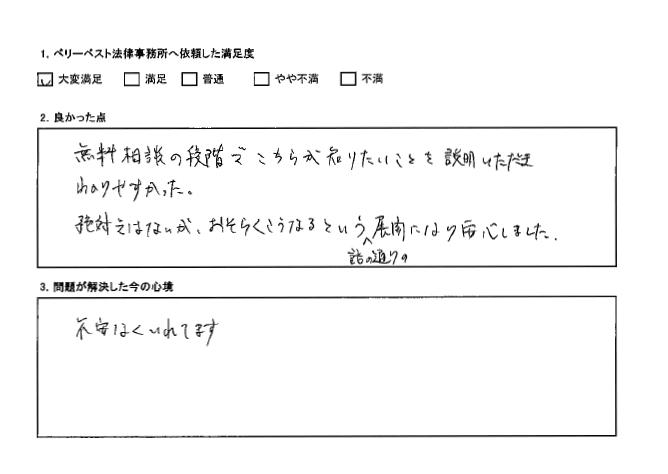 1. ベリーベスト法律事務所へ依頼した満足度
大変満足 満足 普通 やや不満 不満
2. 良かった点
無料相談の段階でこちらが知りたいことを説明いただき
わかりやすかった。
絶対ではないが、おそらくこうなるという展開になり安心しました。
話の通りの
3. 問題が解決した今の心境
不安なくいれてます